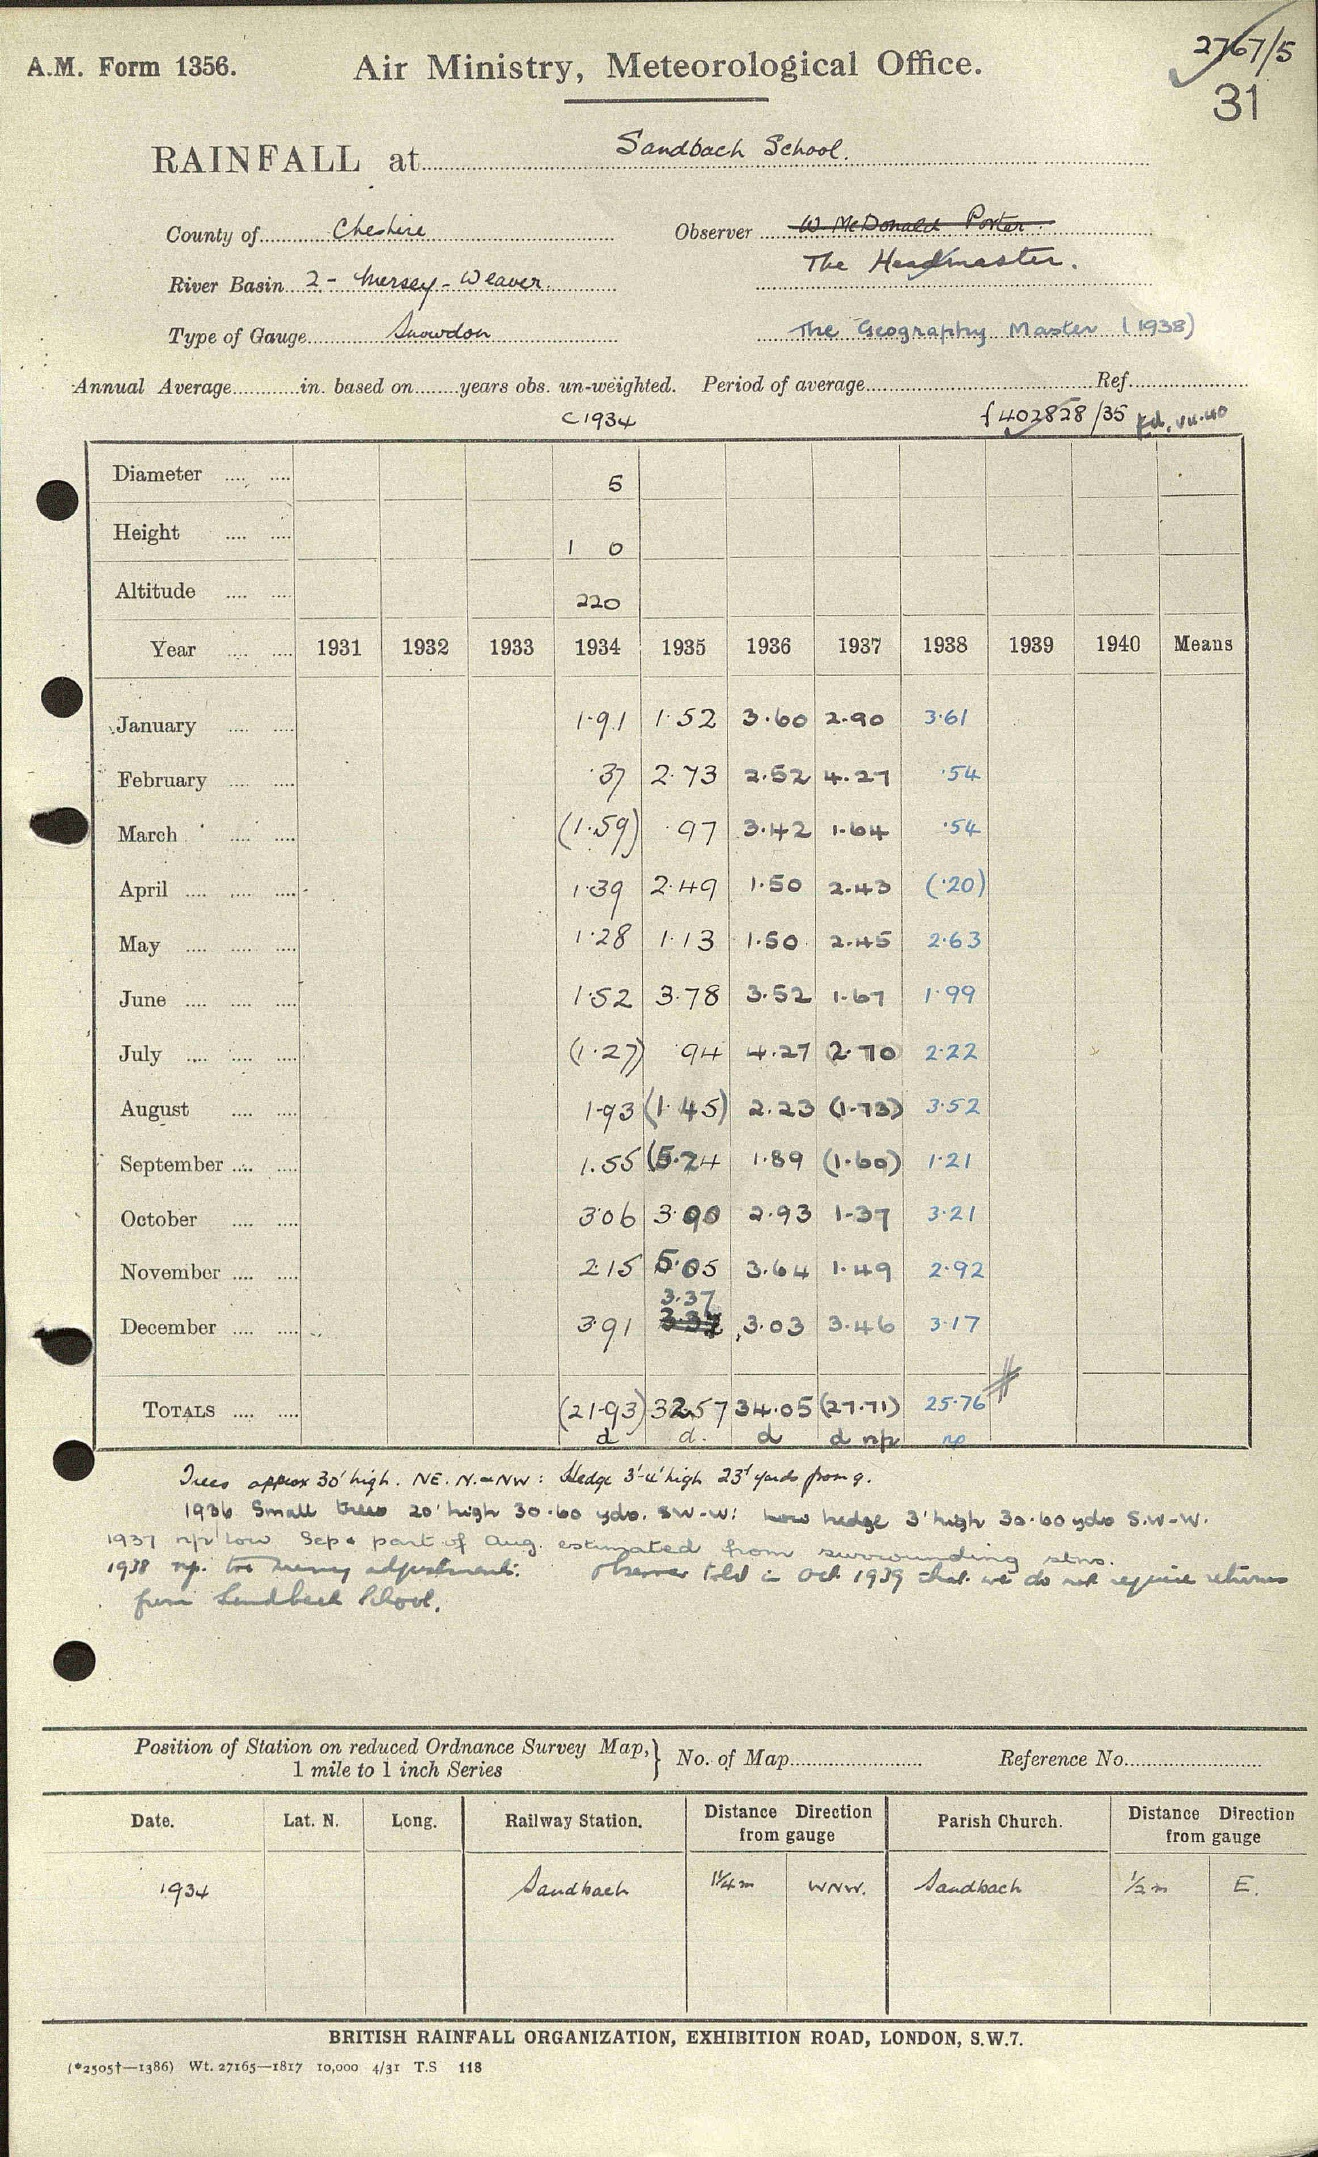 2767/5
A.M. Form 1356.
Air Ministry, Meteorological Office.
31
RAINFALL at Sandbach School.
County of Cheshire Observer W McDonald Porter.
The Headmaster.
River Basin 2 - Mersey - Weaver.
Type of Gauge Snowdon The Geography Master (1938)
Annual Average in. based on years obs. un-weighted. Period of average Ref.
c 1934 f 402828/35
Diameter 5
Height 1 0
Altitude 220
Year 1931 1932 1933 1934 1935 1936 1937 1938 1939 1940 Means
January 1.91 1.52 3.60 2.90 3.61
February .37 2.73 2.52 4.27 .54
March (1.59) .97 3.42 1.64 .54
April 1.39 2.49 1.50 2.43 (.20)
May 1.28 1.13 1.50 2.45 2.63
June 1.52 3.78 3.52 1.67 1.99
July (1.27) .94 4.27 (2.70) 2.22
August 1.93 (1.45) 2.23 (1.73) 3.52
September 1.55 (5.24 1.89 (1.60) 1.21
October 3.06 3.90 2.93 1.37 3.21
November 2.15 5.05 3.64 1.49 2.92
3.37
December 3.91 3.37 3.03 3.46 3.17
TOTALS (21.93) 32.57 34.05 (27.71) 25.76
d d. d d np np
Trees approx 30' high. NE. N. & NW: Hedge 3'-4' high 23' yards from g.
1936 Small trees 20' high 30.60 yds. SW-W: Low hedge 3' high 30.60 yds S.W-W.
1937 np low Sep & part of Aug. estimated from surrounding stns.
1938 np. too many adjustments. Observer told in Oct 1939 that we do not require returns
from Sandbach School.
Position of Station on reduced Ordnance Survey Map, } No. of Map Reference No.
1 mile to 1 inch Series
Date. Lat. N. Long. Railway Station. Distance Direction from gauge Parish Church. Distance Direction from gauge
1934 Sandbach 1¼ m WNW. Sandbach ½ m E.
BRITISH RAINFALL ORGANIZATION, EXHIBITION ROAD, LONDON, S.W.7.
(*2505†—1386) Wt. 27165—1817 10,000 4/31 T.S 118